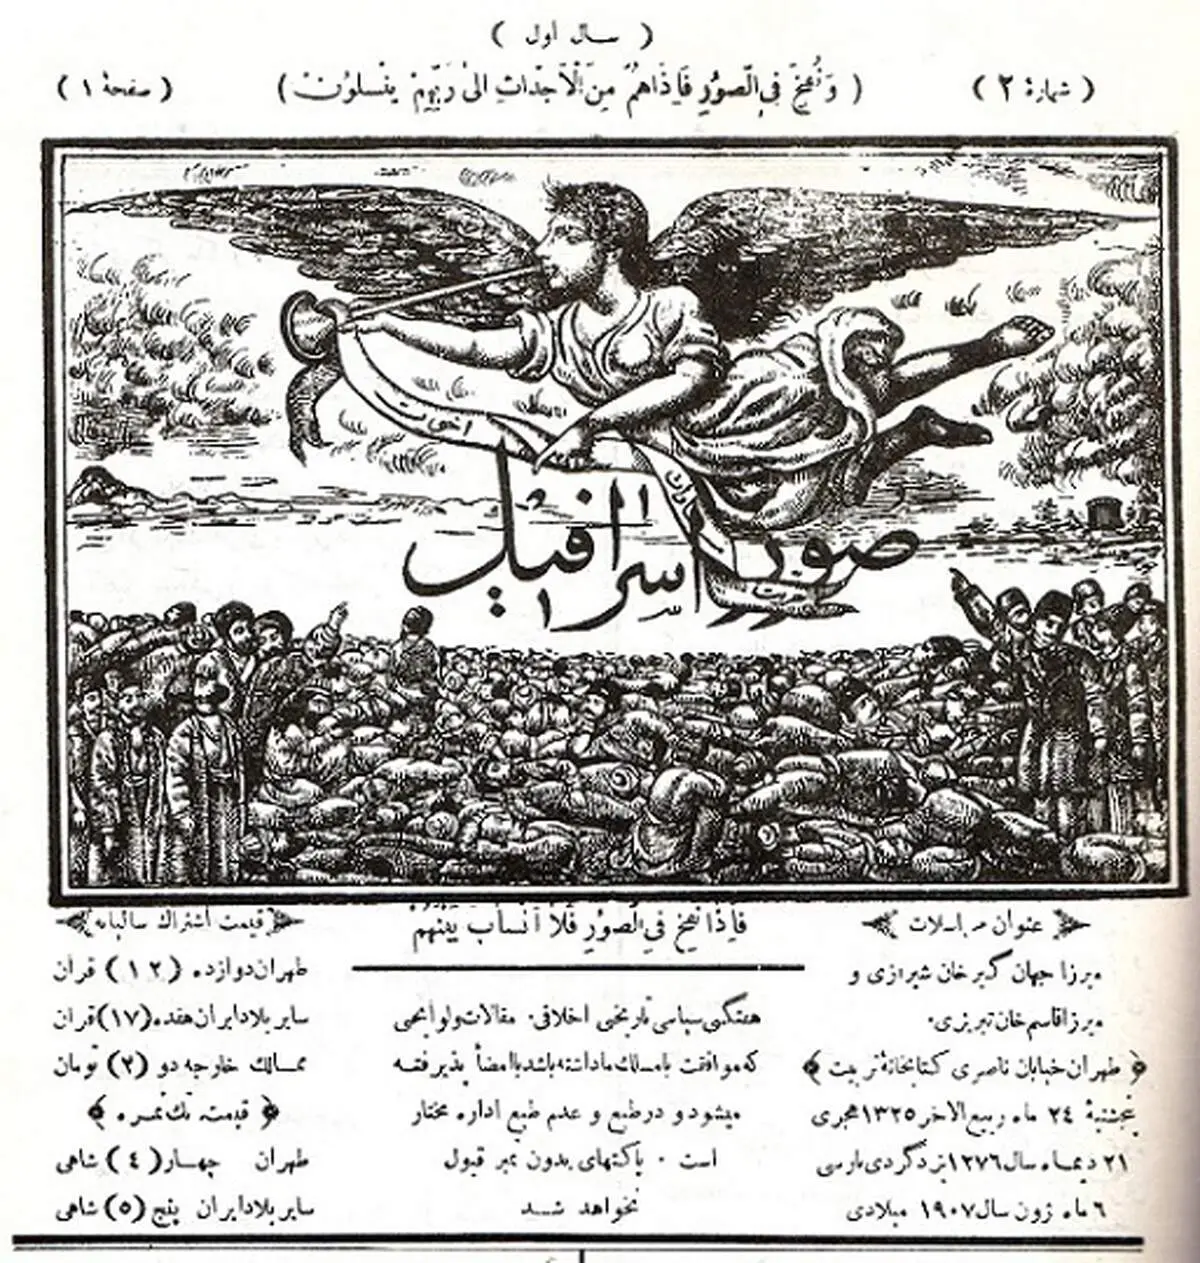 ( سال اول )
( شمارهٔ ۲ )
( وَنُفِخَ فِی الصُّورِ فَاِذَاهُمْ مِنَ الْاَجْدَاثِ اِلیٰ رَبِّهِمْ یَنْسِلُونَ )
( صفحهٔ ۱ )
اخوت
مساوات
حریت
صور اسرافیل
عنوان مراسلات
میرزا جهان گیر خان شیرازی و
میرزا قاسم خان تبریزی.
﴿ طهران خیابان ناصری کتابخانهٔ تربیت ﴾
پنجشنبهٔ ۲۴ ماه ربیع الاخر ۱۳۲۵ هجری
۲۱ دیماه سال ۱۲۷۶ یزدگردی پارسی
۶ ماه ژون سال ۱۹۰۷ میلادی
فَاِذَا نُفِخَ فِی الصُّورِ فَلَا اَنْسَابَ بَیْنَهُمْ
هفتگی سیاسی تاریخی اخلاقی. مقالات و لوایحی
که موافقت با مسلک ما داشته باشد با امضأ پذیرفته
میشود و در طبع و عدم طبع اداره مختار
است . پاکتهای بدون تمبر قبول
نخواهد شد
قیمت اشتراک سالیانه
طهران دوازده (۱۲) قران
سایر بلاد ایران هفده (۱۷) قران
ممالک خارجه دو (۲) تومان
﴿ قیمت تک نمره ﴾
طهران چهار (٤) شاهی
سایر بلاد ایران پنج (۵) شاهی